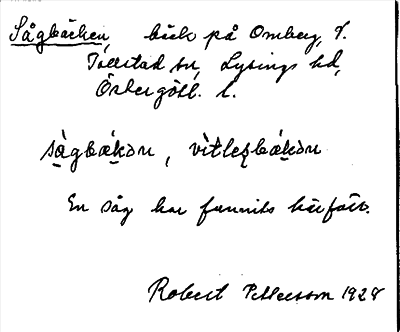 Sågbäcken, bäck på Omberg, V.
Tollstad sn, Lysings hd,
Östergötl. l.
sàgbäkən, vìtləsbäkən
En såg har funnits här förr.
Robert Pettersson 1928